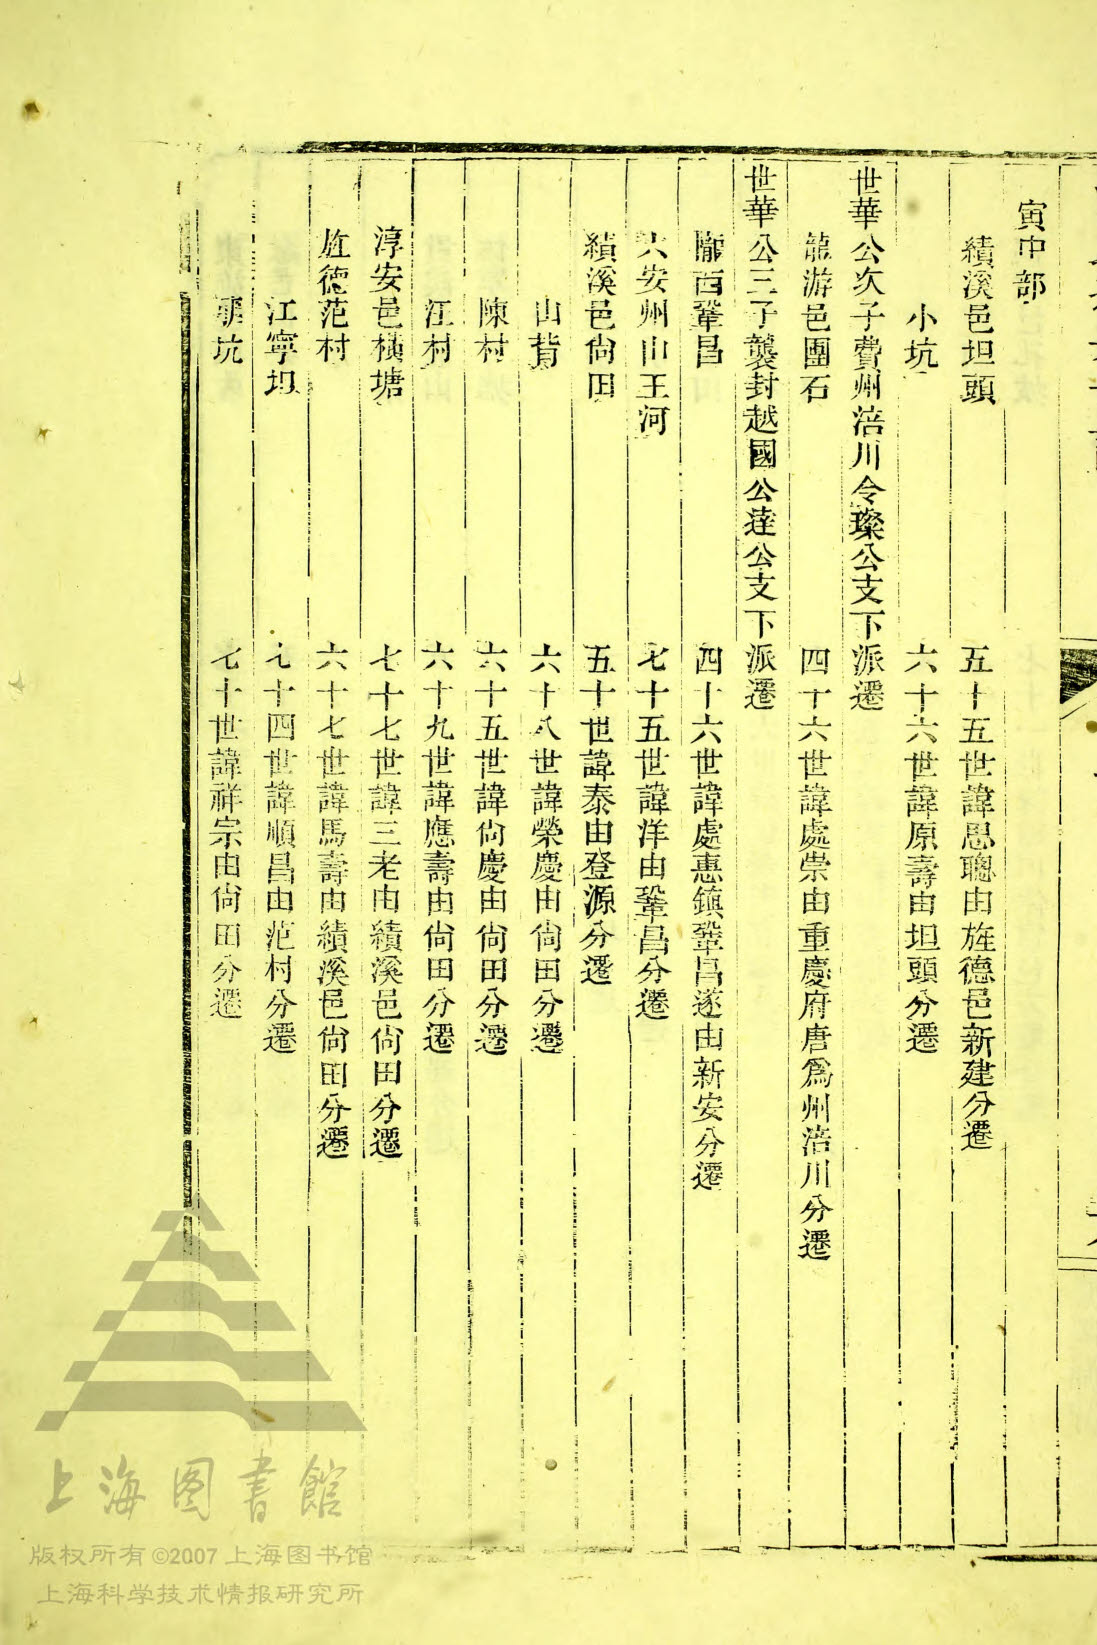 寅中部
績溪邑坦頭　五十五世諱思聰由旌德邑新建分遷
小坑　六十六世諱原壽由坦頭分遷
世華公次子費州涪川令璨公支下派遷
龍游邑團石　四十六世諱處崇由重慶府唐爲州涪川分遷
世華公三子襲封越國公達公支下派遷
隴西鞏昌　四十六世諱處惠鎮鞏昌遂由新安分遷
六安州山王河　七十五世諱洋由鞏昌分遷
績溪邑尙田　五十世諱泰由登源分遷
山背　六十八世諱榮慶由尙田分遷
陳村　六十五世諱尙慶由尙田分遷
江村　六十九世諱應壽由尙田分遷
淳安邑橫塘　七十七世諱三老由績溪邑尙田分遷
旌德范村　六十七世諱馬壽由績溪邑尙田分遷
江寧坦　七十四世諱順昌由范村分遷
坑　七十世諱祥宗由尙田分遷
上海图書館
版权所有©2007上海图书馆
上海科学技术情报研究所